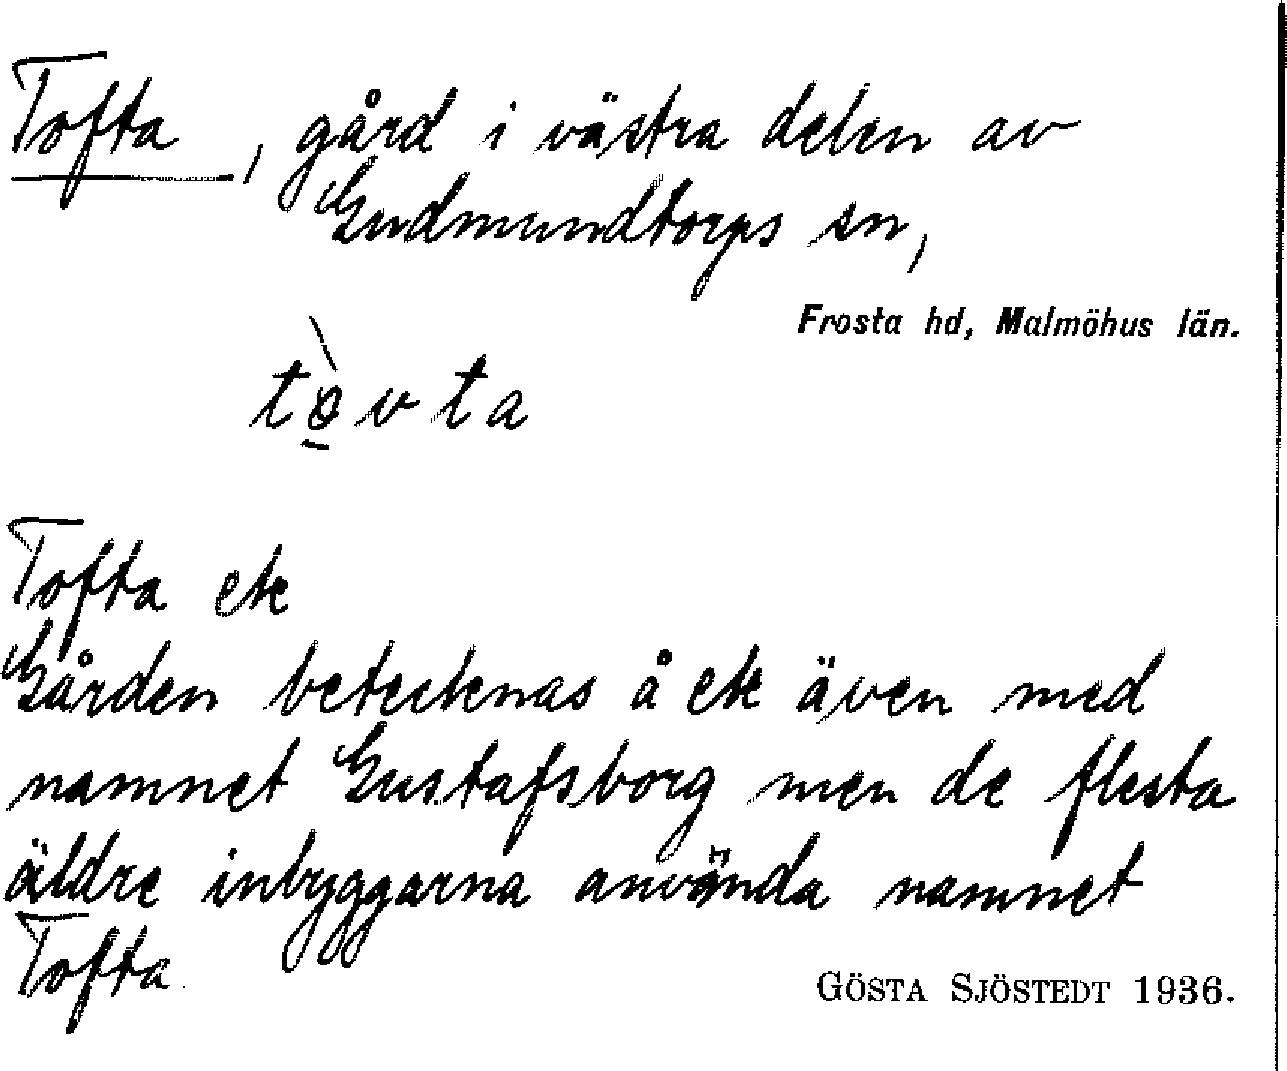 Tofta, gård i västra delen av
Gudmundtorps sn,
Frosta hd, Malmöhus län.
tò̠vta
Tofta ek
Gården betecknas å ek även med
namnet Gustafsborg men de flesta
äldre inbyggarna använda namnet
Tofta.
GÖSTA SJÖSTEDT 1936.